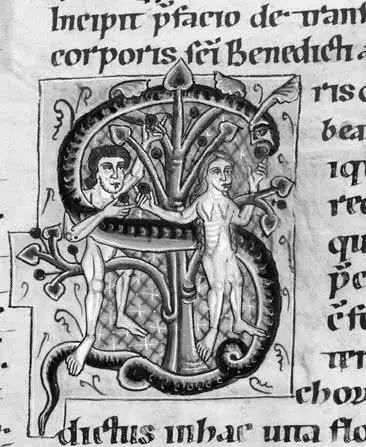 Incipit p̄facio de tran
corporis sc̄i Benedicti
ris
bea
iq
re
qu
p̄
ē
chor
dictus in hac una flo